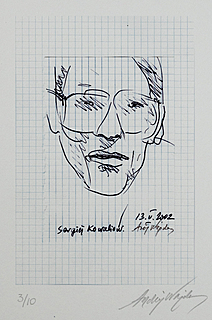 13.V.2002
Sergiej Kowalow.
Andrzej Wajda
3/10
Andrzej Wajda